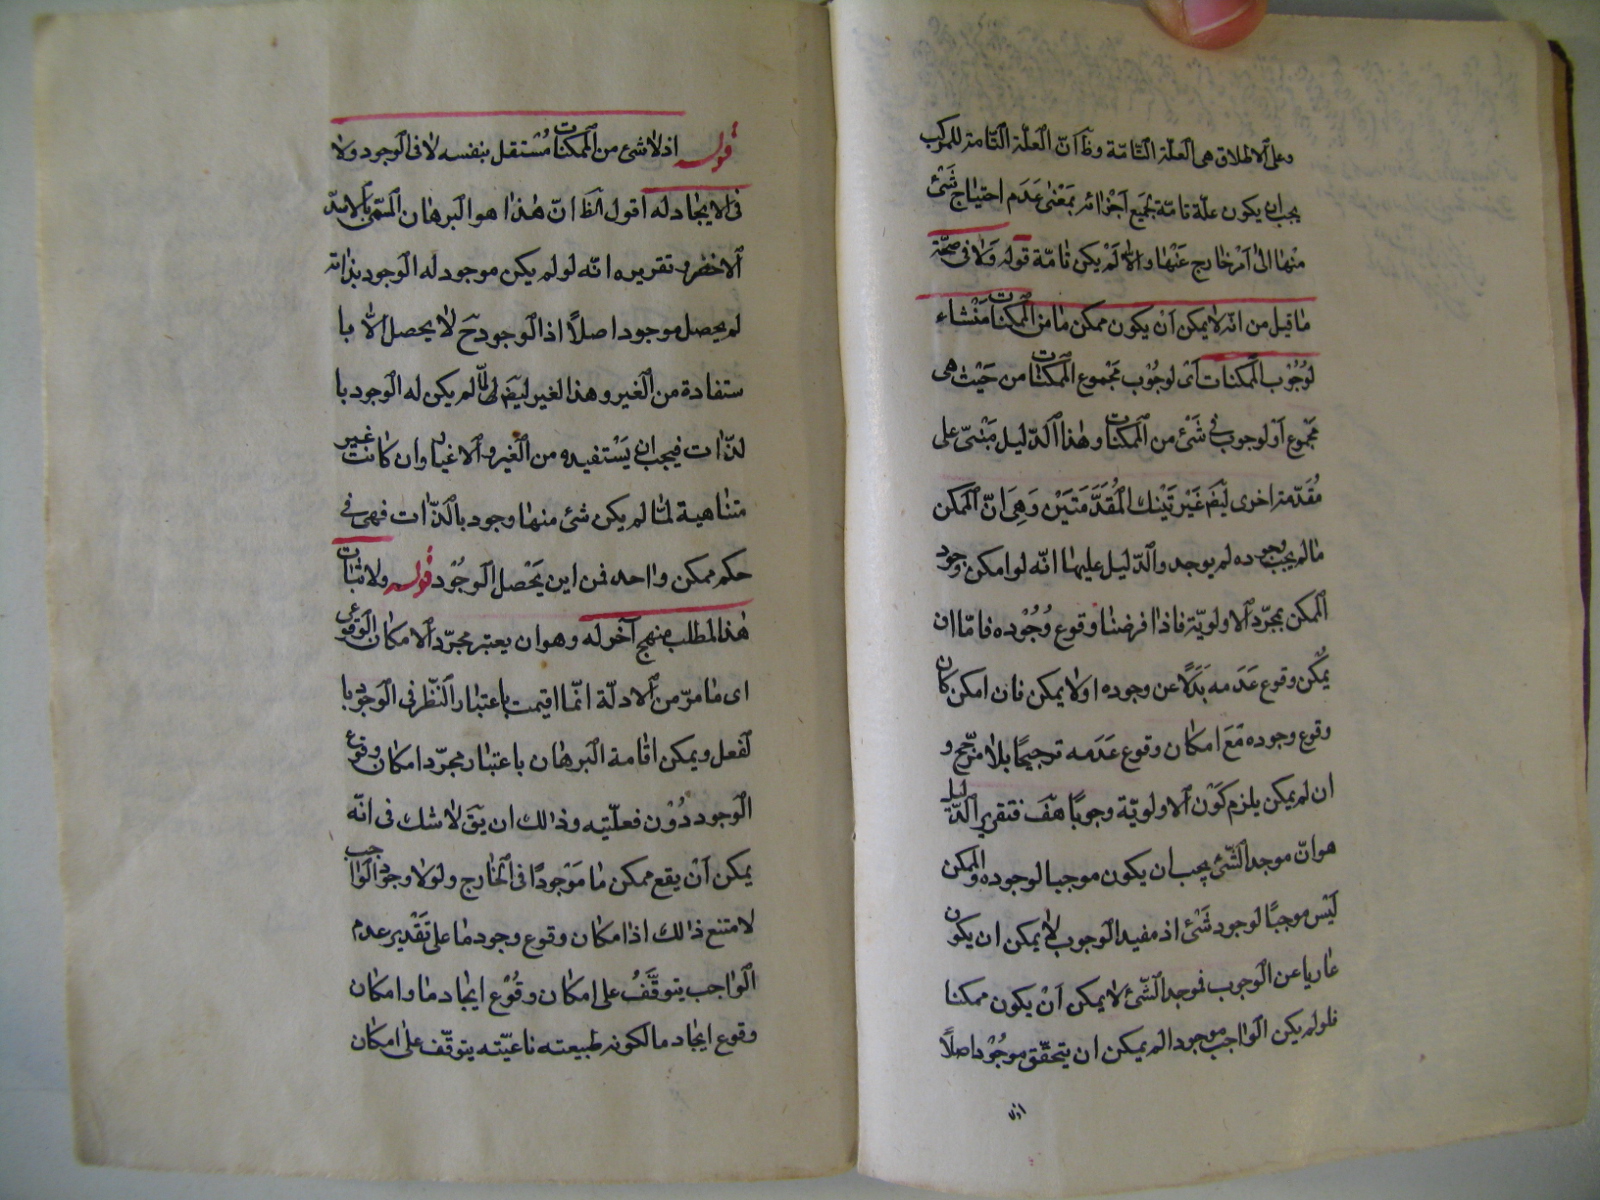 وعلى الاطلاق هى العلّة التّامّة وظ انّ العلّة التّامة للمركب
يجب ان يكون علّة تامّة لجميع اجزائه بمَعْنى عَدَم احتياج شَئْ
منها الى اَمر خارج عَنْها والّا لَمْ يكن تامّة قوله وَلا فى صحّة
ما قيل من انّه لا يمكن اَنْ يكون ممكن ما من الممكنات مَنْشاء
لوُجُوْب الممكنات اَىْ لوجُوْب مَجْموع الممكنات من حَيْث هى
مجموع اَوْ لوجوب فى شَئْ من الممكنات وهذا الدّليل مَبْنىّ على
مُقَدّمة اخرى ليْضَ غَيْر تَيْنك الْمُقَدَّمَتَيْن وَهِىَ انّ الممكن
ما لم يجب وجوده لم يوجد والدّليل عليها انّه لو امكن وجود
الممكن بمجرّد الاولويّة فاذا فرضنا وقوع وُجُوْده فامّا ان
يمْكن وقوع عَدَمه بَدَلًا عن وجوده اولا يمكن فان امكن كان
وقوع وجوده مَعَ امكان وقوع عَدَمه ترجيحًا بلا مرّجح و
ان لم يمكن يلزم كَوْن الاولويّة وجوبًا هَفَ فتقرير الدّليل
هو انّ موجد الشّئ يجب ان يكون موجبا لوجوده والممكن
لَيْس موجبًا لوجود شَئْ اذ مفيد الوجوب لا يمكن ان يكون
عاريا عن الوجوب فموجد الشّئ لا يمكن اَنْ يكون ممكنا
فلو لم يكن الواجب موجودا لم يمكن ان يتحقّق موجُوْد اصلًا
اذ لا
قوله اذ لا شئ من الممكنات مُسْتقل بنفسه لا فى الوجود ولا
فى الايجاد له اقول الظ انّ هذا هو البرهان المسّمى بالاسدّ
الاخضر وتقريره انّه لو لم يكن موجود له الوجود بذاته
لم يحصل موجود اصلًا اذ الوجود حَ لا يحصل الّا با
ستفادة من الغير وهذا الغير ليضَ لمّا لم يكن له الوجود با
لذّات فيجب ان يَسْتفيده من الغير والاغيار وان كانت غير
متناهية لمّا لم يكن شئ منها وجود بالذّات فهى فى
حكم ممكن واحد فمن اين يَحْصل الوجُوْد قوله ولاثبات
هذا المطلب منهج آخر له وهو ان يعتبر مجرّد الامكان الوقوعى
اى ما مرّ من الادلّة انّما اقيمت باعتبار النّظر فى الوجود با
لفعل ويمكن اقامة البرهان باعتبار مجرّد امكان وقوع
الوجود دُوْن فعليّته وذالك ان يقَ لا شك فى انّه
يمكن اَنْ يقع ممكن ما مَوْجودًا فى الخارج ولولا وجود الواجب
لامتنع ذالك اذ امكان وقوع وجود ما على تَقْدير عدم
الواجب يتوقَّفُ على امكان وقُوْع ايجاد ما وامكان
وقوع ايجاد ما لكونه طبيعته ناعيّته يتوقّف على امكان